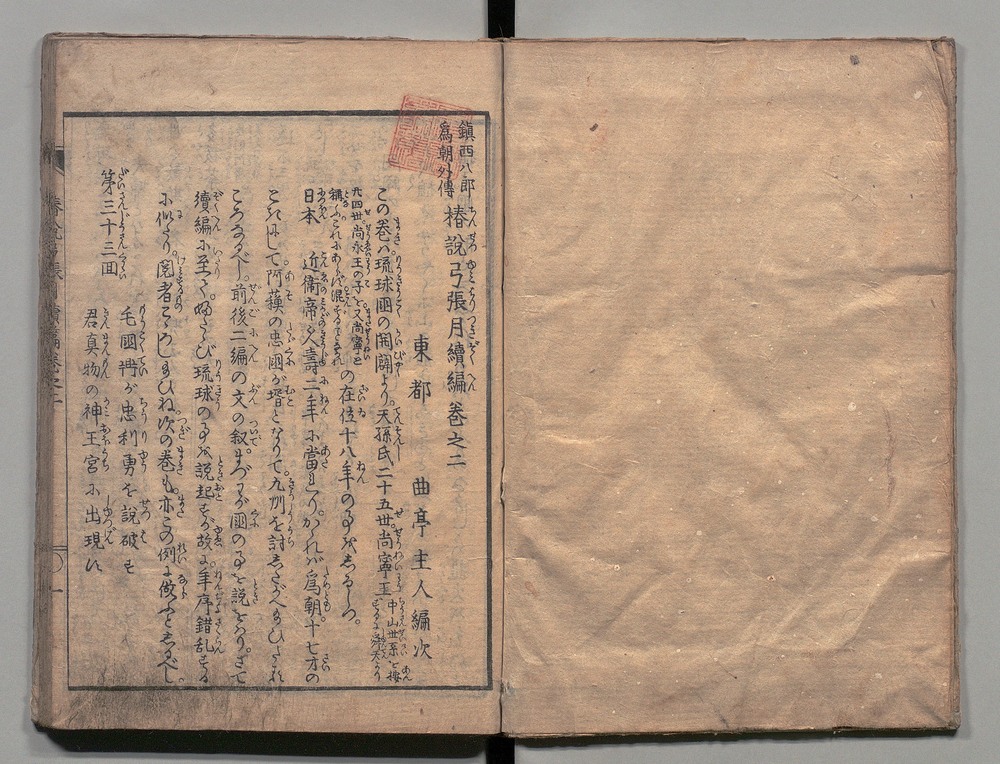 鎮西八郎
為朝外傳
椿説弓張月續編巻之二
東都　曲亭主人編次
この巻ハ琉球國の開闢より。天孫氏二十五世尚寧王
中山世系を按
九四世。尚永王の子を又尚寧と
の在位十八年の事をしるしつ。
日本　近衛帝久壽二年に當れり。かゝれバ為朝十七才の
ころにして。阿蘓の忠國が壻となりて。九州を討したがへ給ひたる
ころなるべし。前後二編の文の叙。まづわが國の事を説をハり。さて
續編に至て。ふたゝび琉球の事を説起すが故に。年序錯乱する
に似たり。閲者こゝろし給ひね次の巻も。亦この例に倣ふとしるべし。
第三十三回
毛國鼎が忠利勇を説破す
君真物の神王宮に出現ス